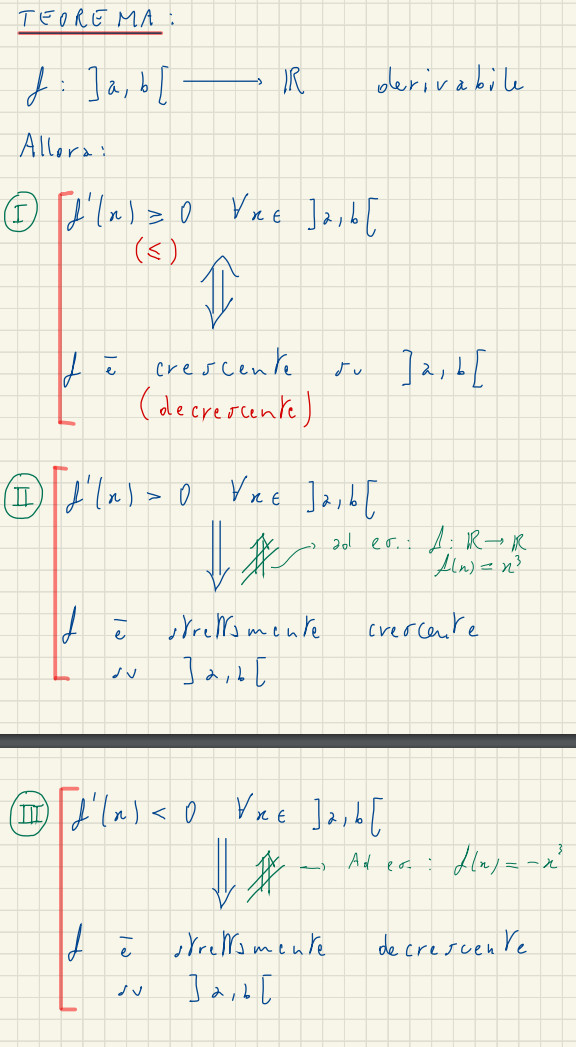 TEOREMA:
f: ]a,b[ ⟶ ℝ derivabile
Allora:
I f'(x) ≥ 0 ∀x ∈ ]a,b[
(≤)
⇕
f è crescente su ]a,b[
(decrescente)
II f'(x) > 0 ∀x ∈ ]a,b[
⇓ ⇑̸ → ad es.: f: ℝ → ℝ
f(x) = x³
f è strettamente crescente
su ]a,b[
III f'(x) < 0 ∀x ∈ ]a,b[
⇓ ⇑̸ → Ad es.: f(x) = -x³
f è strettamente decrescente
su ]a,b[